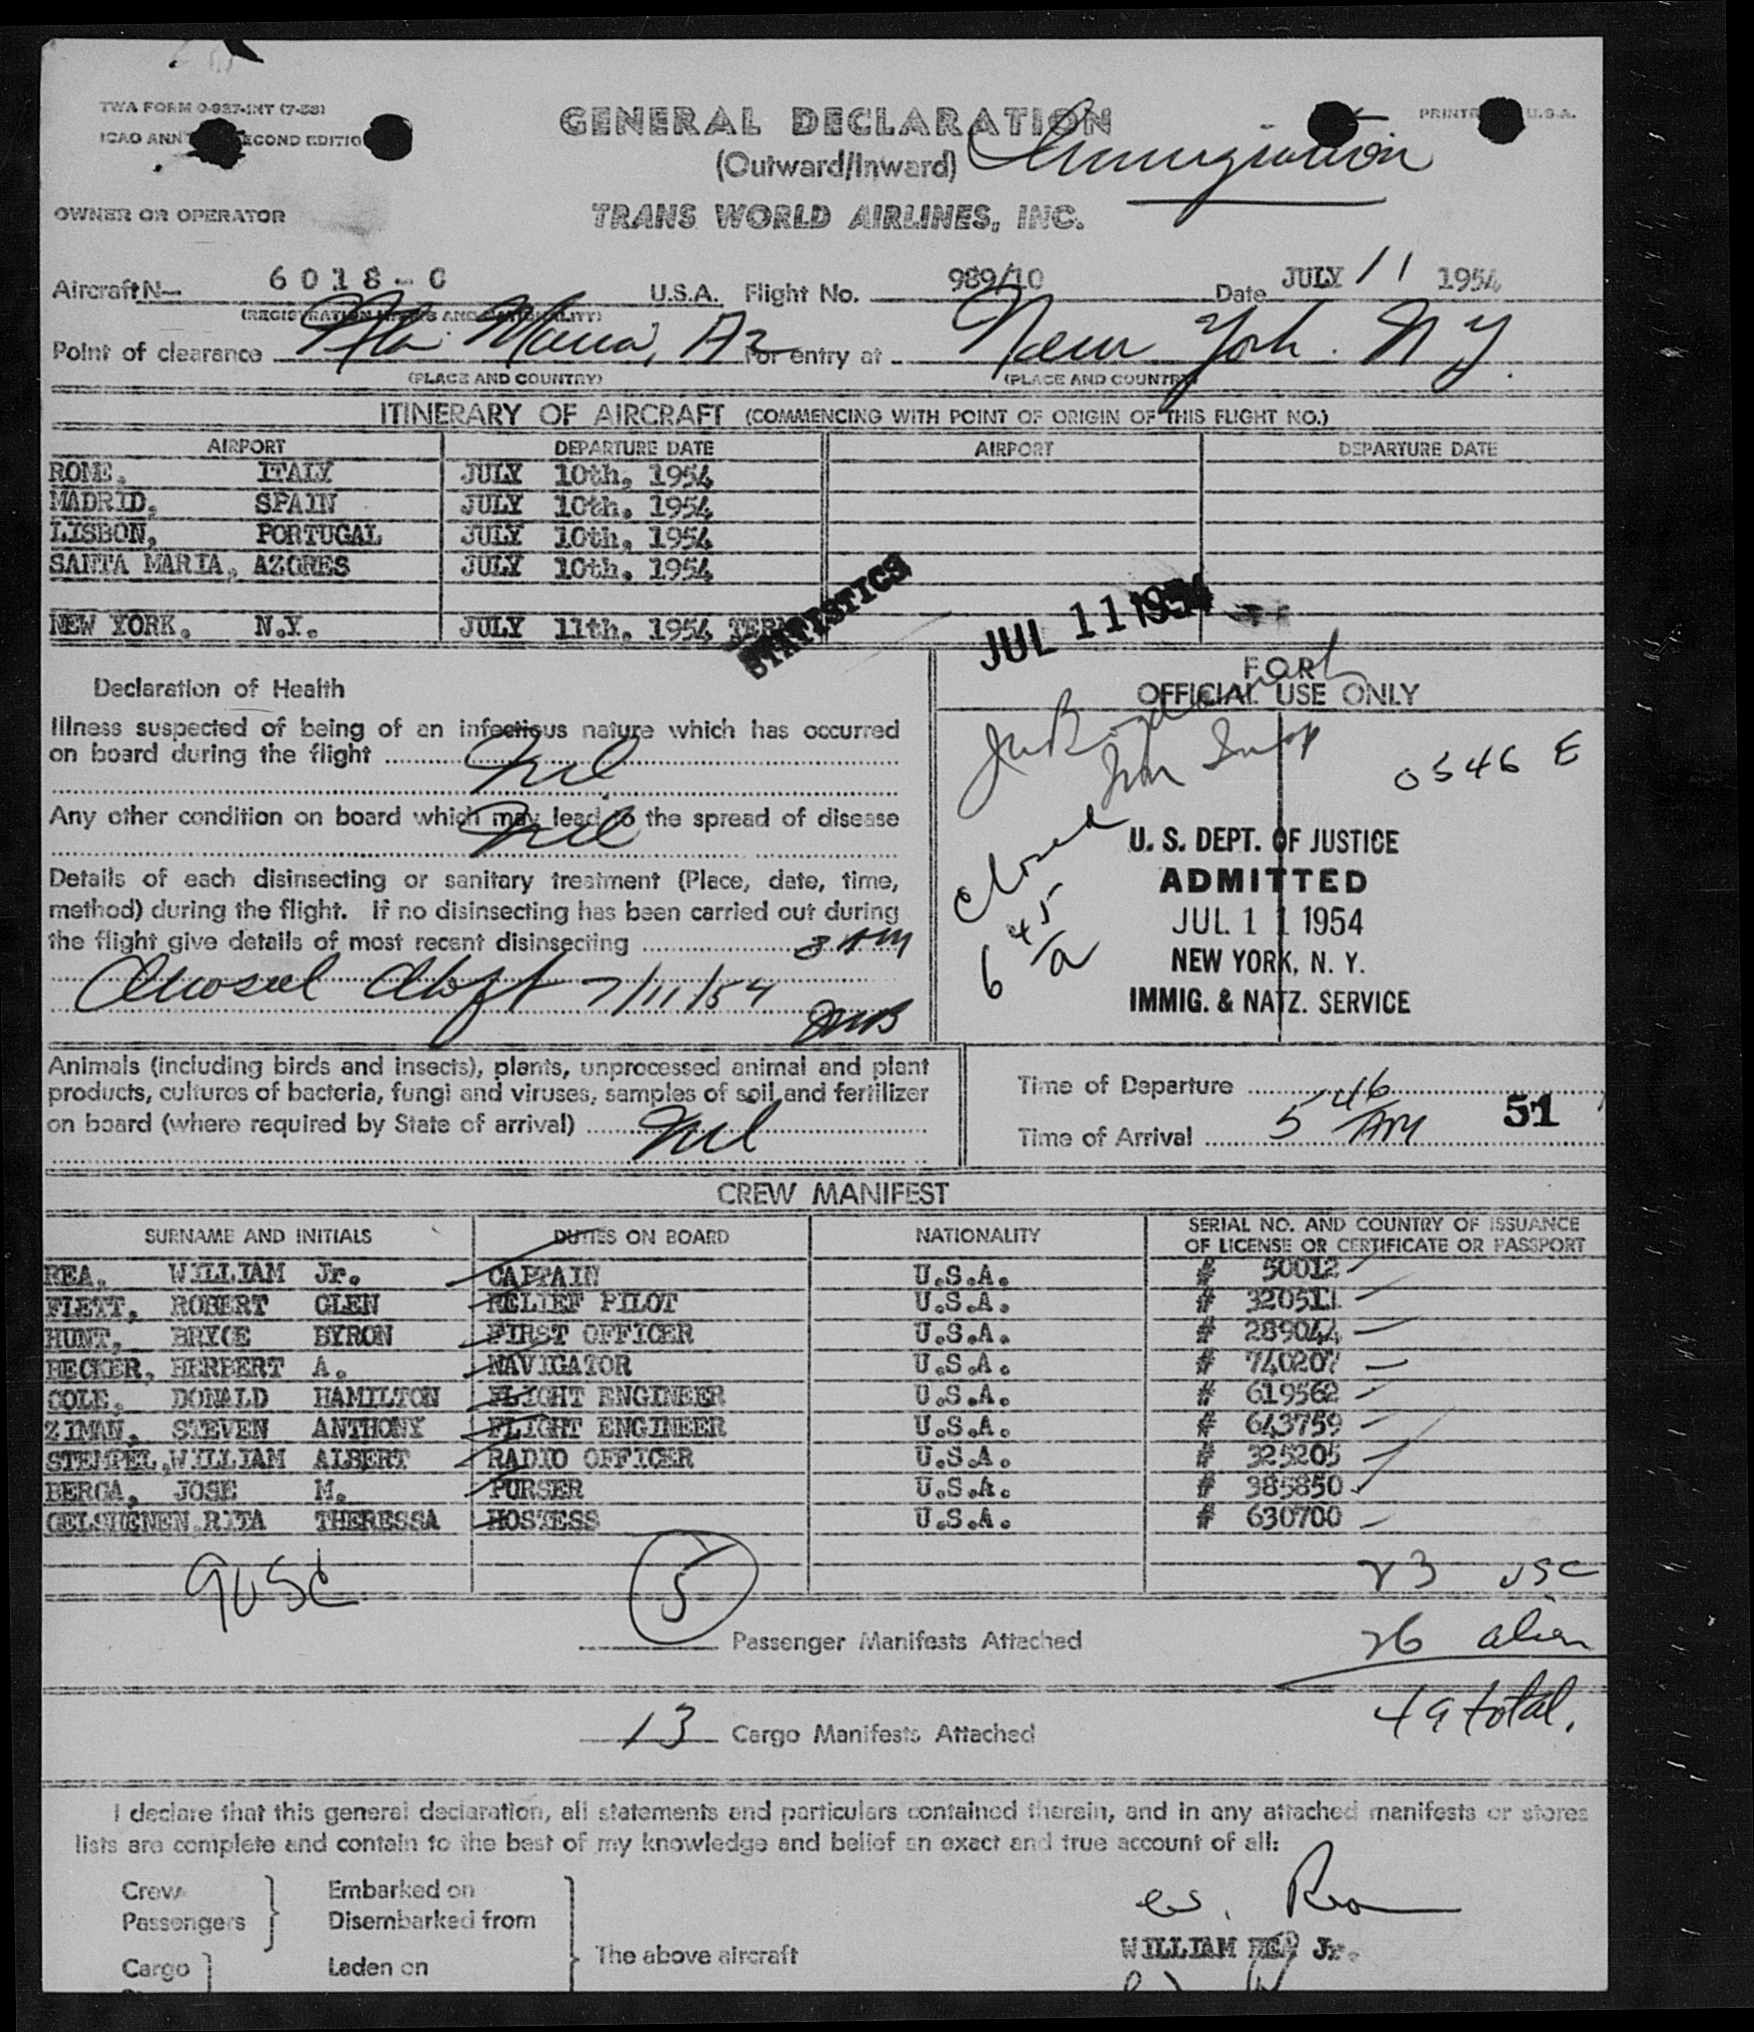 TWA FORM 0-937-INT (7-53)
ICAO ANN SECOND EDITIO
GENERAL DECLARATION
(Outward/Inward)
Immigration
PRINTE U.S.A.
OWNER OR OPERATOR
TRANS WORLD AIRLINES, INC.
Aircraft N— 6018-C U.S.A. Flight No. 989/10 Date JULY 11 1954
(REGISTRATION MARKS AND NATIONALITY)
Point of clearance Sta Maria, Az For entry at New York. N Y.
(PLACE AND COUNTRY) (PLACE AND COUNTRY)
ITINERARY OF AIRCRAFT (COMMENCING WITH POINT OF ORIGIN OF THIS FLIGHT NO.)
AIRPORT DEPARTURE DATE AIRPORT DEPARTURE DATE
ROME, ITALY JULY 10th, 1954
MADRID, SPAIN JULY 10th, 1954
LISBON, PORTUGAL JULY 10th, 1954
SANTA MARIA, AZORES JULY 10th, 1954
NEW YORK, N.Y. JULY 11th, 1954
STATISTICS
JUL 11 1954
Declaration of Health
FOR
OFFICIAL USE ONLY
Illness suspected of being of an infectious nature which has occurred
on board during the flight Nil
0546 E
Any other condition on board which may lead to the spread of disease
Nil
Closed
6 45/a
Details of each disinsecting or sanitary treatment (Place, date, time,
method) during the flight. If no disinsecting has been carried out during
the flight give details of most recent disinsecting 3 AM
Aerosol Aloft 7/11/54
U. S. DEPT. OF JUSTICE
ADMITTED
JUL 11 1954
NEW YORK, N. Y.
IMMIG. & NATZ. SERVICE
Animals (including birds and insects), plants, unprocessed animal and plant
products, cultures of bacteria, fungi and viruses, samples of soil and fertilizer
on board (where required by State of arrival) Nil
Time of Departure
Time of Arrival 5 46 AM
51
CREW MANIFEST
SURNAME AND INITIALS DUTIES ON BOARD NATIONALITY SERIAL NO. AND COUNTRY OF ISSUANCE
OF LICENSE OR CERTIFICATE OR PASSPORT
REA, WILLIAM Jr. CAPTAIN U.S.A. # 50012
FLETT, ROBERT GLEN RELIEF PILOT U.S.A. # 320511
HUNT, BRYCE BYRON FIRST OFFICER U.S.A. # 289044
BECKER, HERBERT A. NAVIGATOR U.S.A. # 740207
COLE, DONALD HAMILTON FLIGHT ENGINEER U.S.A. # 619562
ZIMAN, STEVEN ANTHONY FLIGHT ENGINEER U.S.A. # 643759
STEMPEL, WILLIAM ALBERT RADIO OFFICER U.S.A. # 325205
BERGA, JOSE M. PURSER U.S.A. # 385850
RITA THERESSA HOSTESS U.S.A. # 630700
9 USC
5 Passenger Manifests Attached
23 USC
26 alien
49 total.
13 Cargo Manifests Attached
I declare that this general declaration, all statements and particulars contained therein, and in any attached manifests or stores
lists are complete and contain to the best of my knowledge and belief an exact and true account of all:
Crew Embarked on
Passengers Disembarked from
Cargo Laden on
The above aircraft
W. Rea
WILLIAM REA Jr.